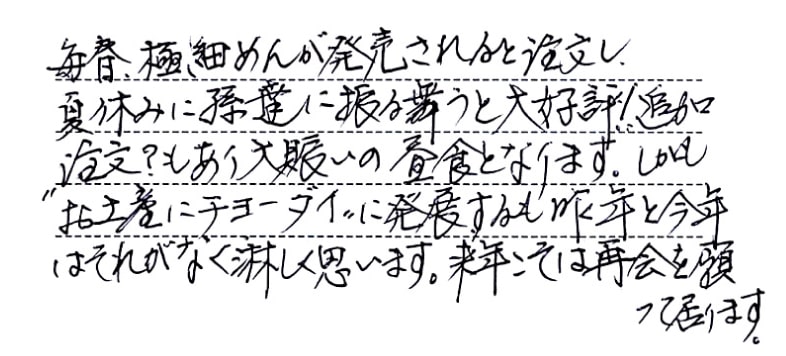 毎春、極細めんが発売されると注文し、
夏休みに孫達に振る舞うと大好評!!追加
注文?もあり大賑いの昼食となります。しかも
"お土産にチョーダイ"に発展するも昨年と今年
はそれがなく淋しく思います。来年こそは再会を願
って居ります。